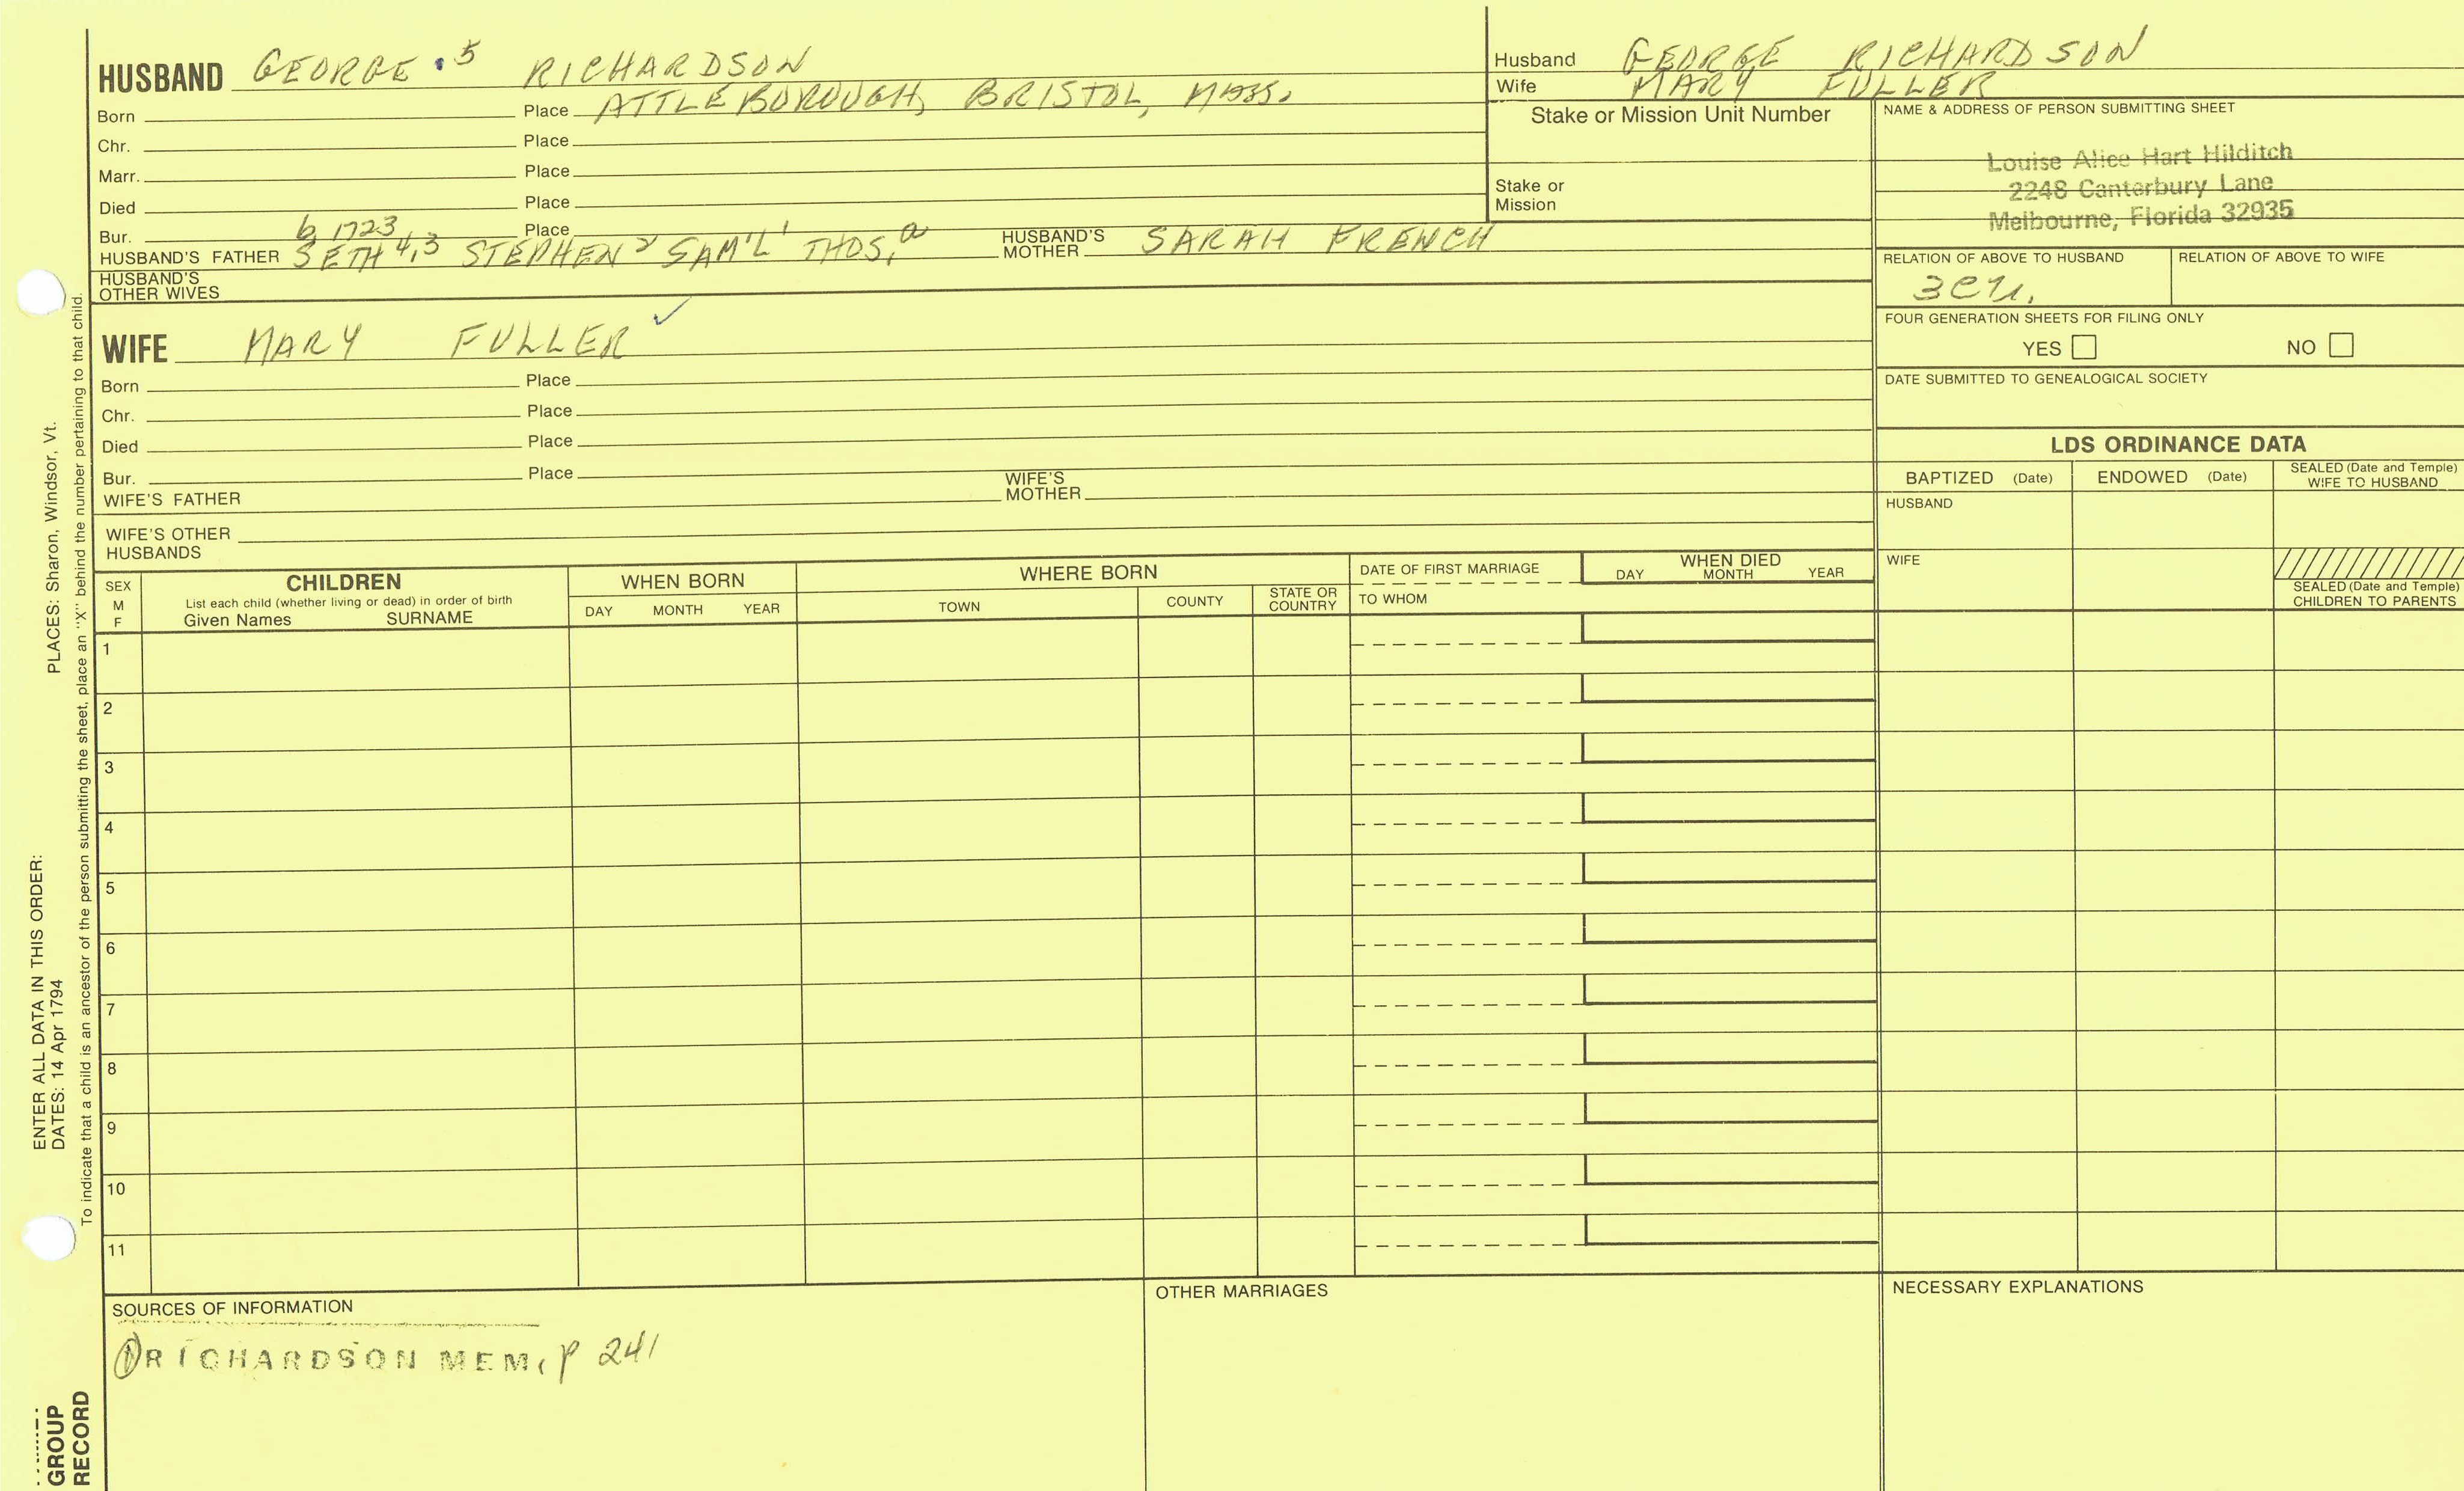 HUSBAND GEORGE .5 RICHARDSON
Born Place ATTLEBOROUGH, BRISTOL, MASS.
Chr. Place
Marr. Place
Died Place
Bur. b 1723 Place
HUSBAND'S FATHER SETH 4,3 STEPHEN 2 SAM'L 1 THOS, a HUSBAND'S MOTHER SARAH FRENCH
HUSBAND'S OTHER WIVES
Husband GEORGE RICHARDSON
Wife MARY FULLER
Stake or Mission Unit Number
Stake or Mission
NAME & ADDRESS OF PERSON SUBMITTING SHEET
Louise Alice Hart Hilditch
2248 Canterbury Lane
Melbourne, Florida 32935
RELATION OF ABOVE TO HUSBAND RELATION OF ABOVE TO WIFE
FOUR GENERATION SHEETS FOR FILING ONLY
YES NO
DATE SUBMITTED TO GENEALOGICAL SOCIETY
WIFE MARY FULLER ✓
Born Place
Chr. Place
Died Place
Bur. Place
WIFE'S FATHER WIFE'S MOTHER
WIFE'S OTHER HUSBANDS
LDS ORDINANCE DATA
BAPTIZED (Date) ENDOWED (Date) SEALED (Date and Temple) WIFE TO HUSBAND
HUSBAND
WIFE
SEALED (Date and Temple) CHILDREN TO PARENTS
SEX M F
CHILDREN
List each child (whether living or dead) in order of birth
Given Names SURNAME
WHEN BORN
DAY MONTH YEAR
WHERE BORN
TOWN COUNTY STATE OR COUNTRY
DATE OF FIRST MARRIAGE
TO WHOM
WHEN DIED
DAY MONTH YEAR
1
2
3
4
5
6
7
8
9
10
11
SOURCES OF INFORMATION
① RICHARDSON MEM, p 241
OTHER MARRIAGES
NECESSARY EXPLANATIONS
ENTER ALL DATA IN THIS ORDER:
DATES: 14 Apr 1794 PLACES: Sharon, Windsor, Vt.
To indicate that a child is an ancestor of the person submitting the sheet, place an "X" behind the number pertaining to that child.
GROUP
RECORD